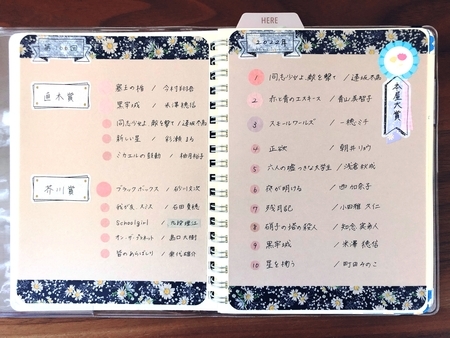 第166回
直木賞
塞王の楯 / 今村翔吾
黒牢城 / 米澤穂信
同志少女よ、敵を撃て / 逢坂冬馬
新しい星 / 彩瀬まる
ミカエルの鼓動 / 柚月裕子
芥川賞
ブラックボックス / 砂川文次
我が友、スミス / 石田夏穂
Schoolgirl / 九段理江
オン・ザ・プラネット / 島口大樹
皆のあらばしり / 乗代雄介
HERE
2022年
本屋大賞
1 同志少女よ、敵を撃て / 逢坂冬馬
2 赤と青のエスキース / 青山美智子
3 スモールワールズ / 一穂ミチ
4 正欲 / 朝井リョウ
5 六人の嘘つきな大学生 / 浅倉秋成
6 夜が明ける / 西加奈子
7 残月記 / 小田雅久仁
8 硝子の塔の殺人 / 知念実希人
9 黒牢城 / 米澤穂信
10 星を掬う / 町田そのこ